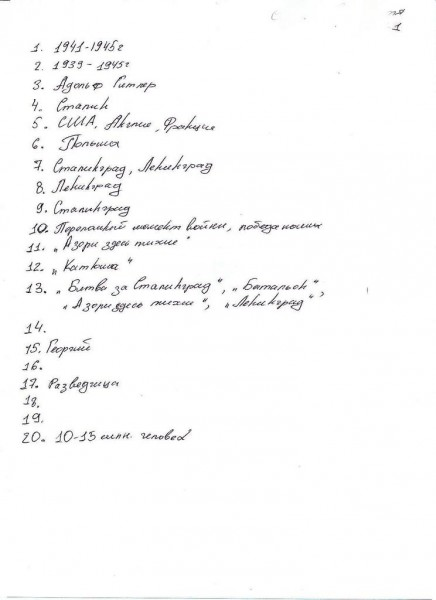 1
1. 1941-1945г
2. 1939 - 1945г
3. Адольф Гитлер
4. Сталин
5. США, Англия, Франция
6. Польша
7. Сталинград, Ленинград
8. Ленинград
9. Сталинград
10. Переломный момент войны, победа наших
11. „Азори здесь тихие"
12. „Катюша"
13. „Битва за Сталинград", „Батальон",
„Азори здесь тихие", „Ленинград"
14.
15. Георгий
16.
17. Разведчица
18.
19.
20. 10-15 млн. человек